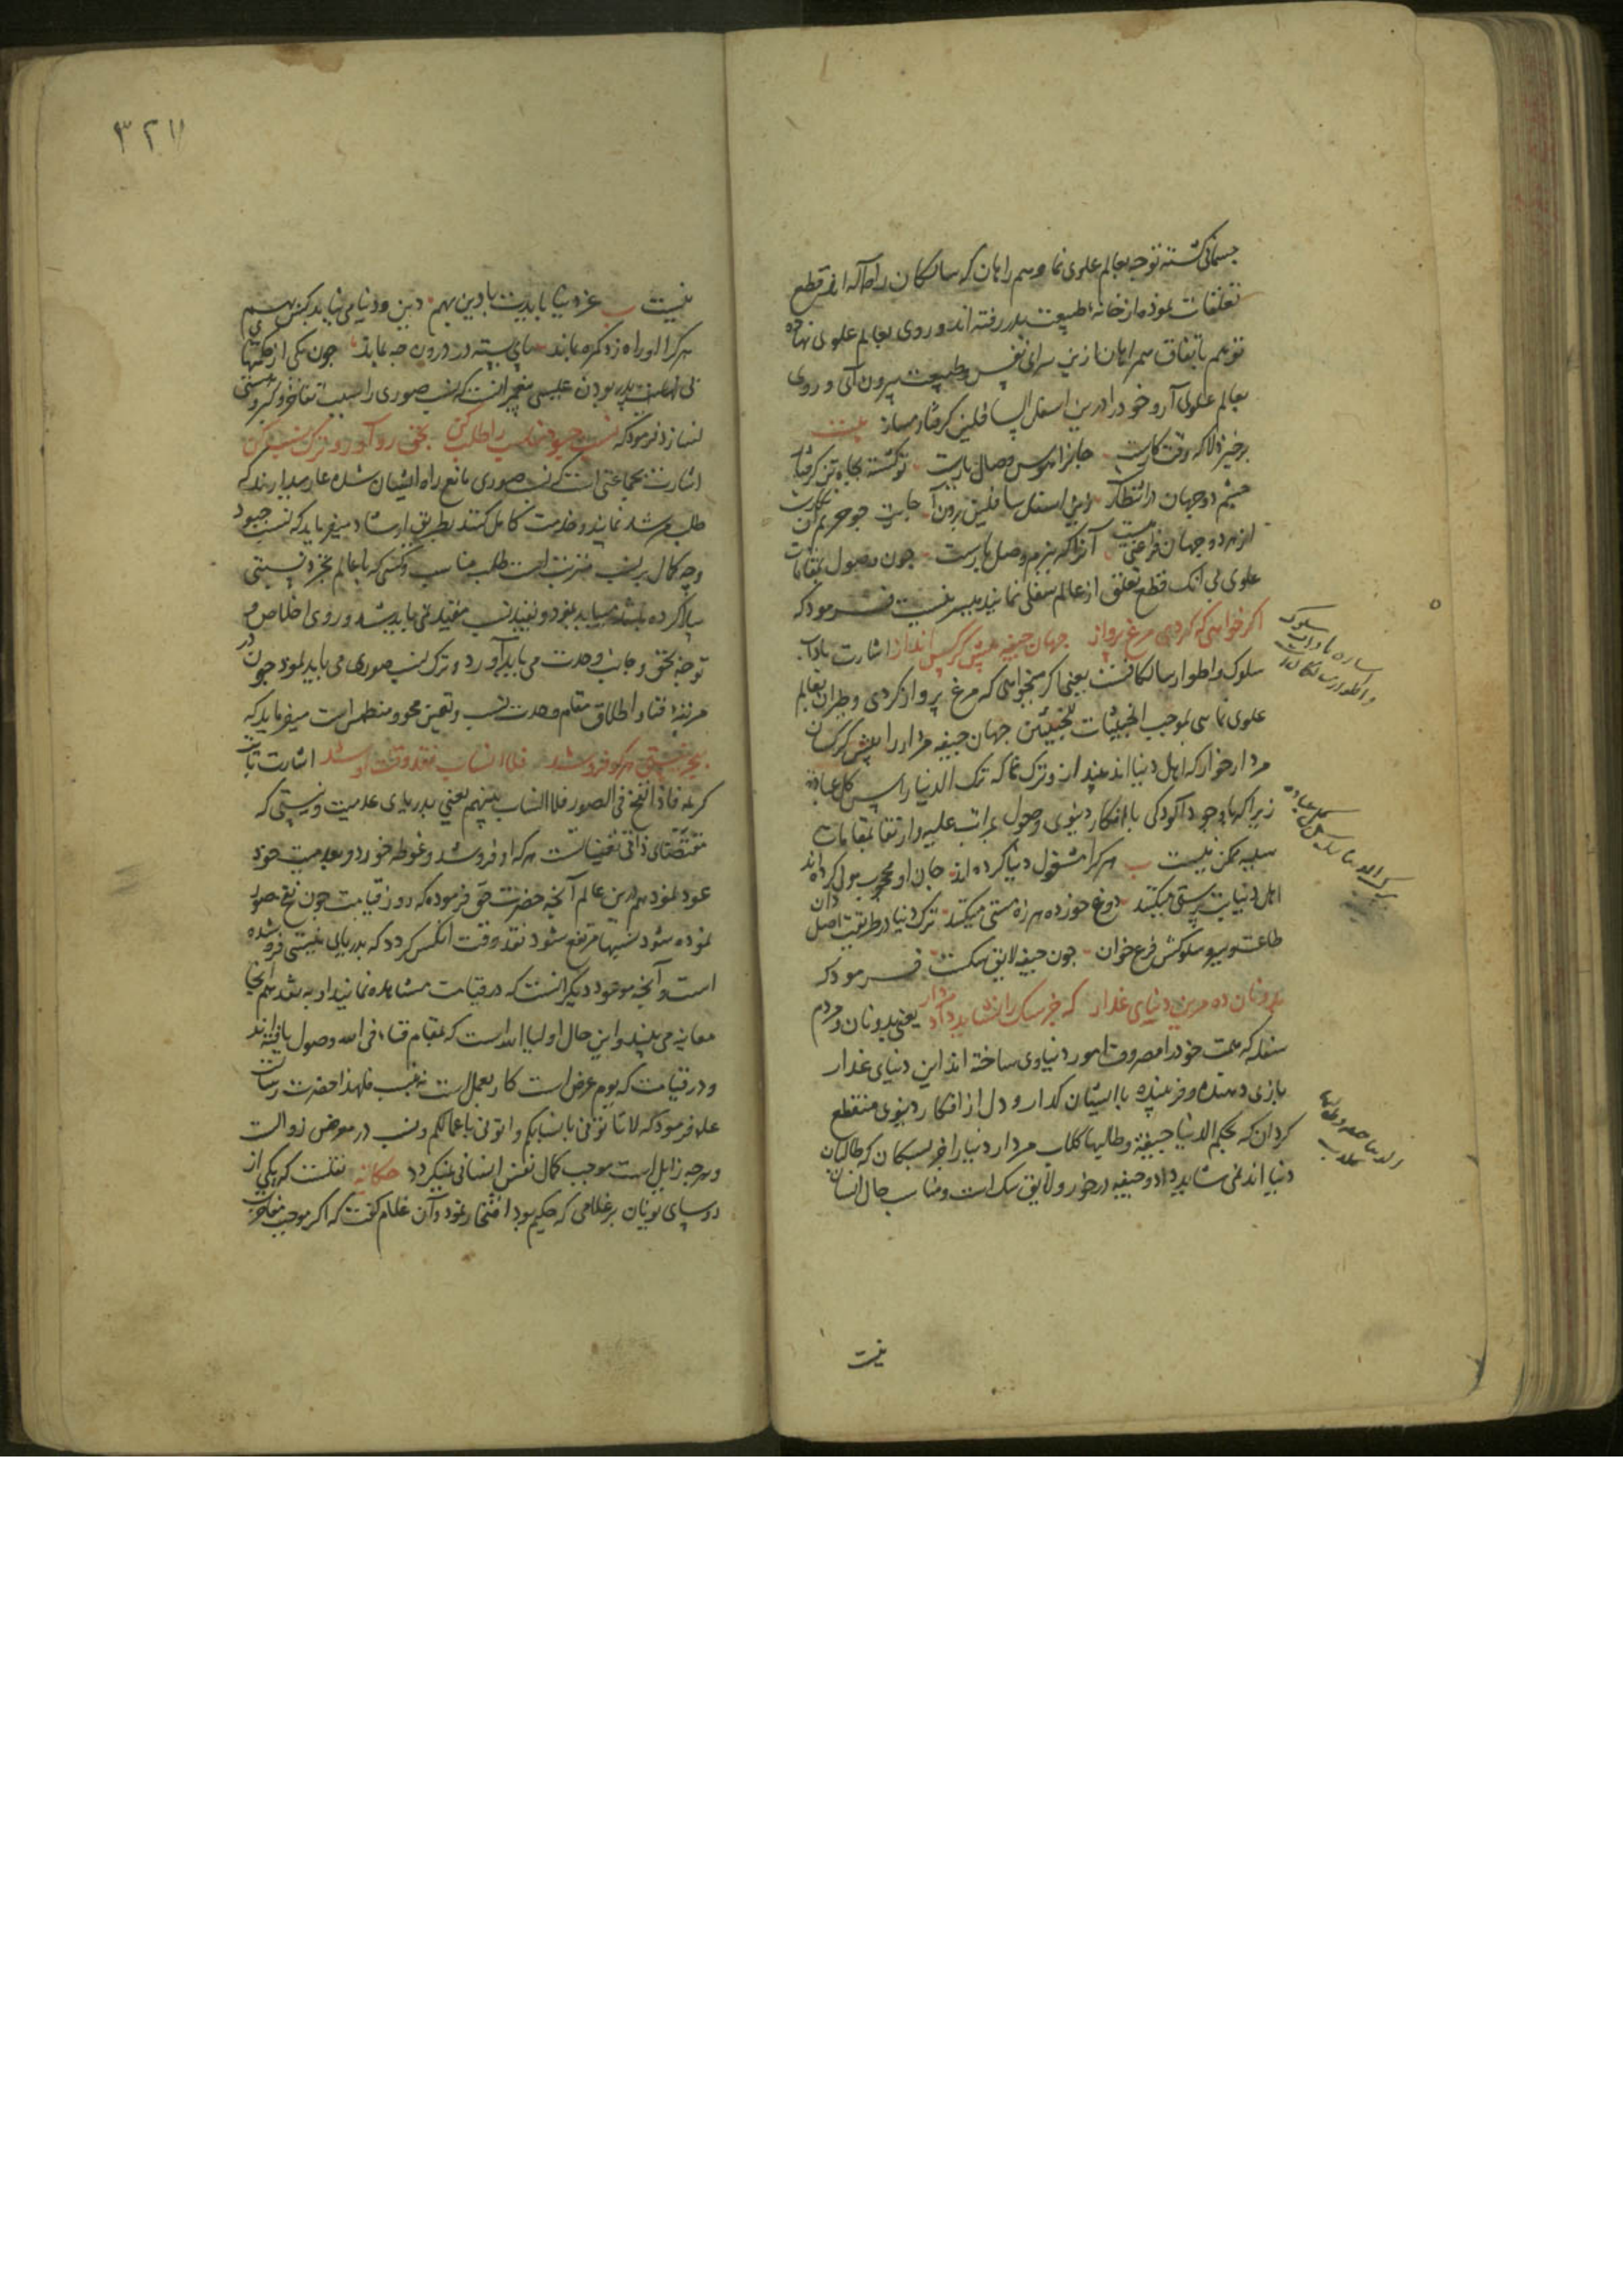 جسمانی کشته توجه بعالم علوی نما و همراهان که سالکان راه اله اند قطع
تعلقات نموده از خانه طبیعت بدر رفته اند و روی بعالم علوی نهاده
تو هم باتفاق همراهان ازین سرای نفس و طبیعت بیرون آی و روی
بعالم علوی آر و خود را درین اسفل السافلین گرفتار مساز بیت
برخیز دلا که وقت کارست جانرا هوس وصال یارست تو کشته بچاه تن گرفتار
چشم دو جهان در انتظار زین اسفل سافلین برون آ جایت چو حریم آن نگارست
از هر دو جهان فراغتی هست آنرا که ببزم وصل یارست چون وصول بمقامات
علوی بی انک قطع تعلق از عالم سفلی نمایند میسر نیست فرمود که
اگر خواهی که گردی مرغ پرواز جهان جیفه پیش کرکس انداز اشارت بآداب
سلوک و اطوار سالکانست یعنی اگر میخواهی که مرغ پرواز گردی و طیران بعالم
علوی نمایی بموجب الخبیثات للخبیثین جهان جیفه مردار را پیش کرکسان
مردار خوار که اهل دنیا اند بینداز و ترک نما که ترک الدنیا راس کل عبادة
زیرا که با وجود آلودگی بافکار دنیوی وصول بمراتب علیه و ارتقا بمقامات
سنیه ممکن نیست هر که را مشغول دنیا کرده اند جان او محجوب مولی کرده اند
اهل دنیا بت پرستی میکنند دوغ خورده هرزه مستی میکنند ترک دنیا در طریقت اصل دان
طاعت و سیر و سلوکش فرع خوان چون جیفه لایق سکست فرمود که
بدونان ده مرین دنیای غدار که جز سک را نشاید داد مردار یعنی بدونان و مردم
سفله که همت خود را مصروف امور دنیاوی ساخته اند این دنیای غدار
بازی دهنده و فریبنده با ایشان گذار و دل از افکار دنیوی منقطع
گردان که بحکم الدنیا جیفة و طالبها کلاب مردار دنیا را جز بسکان که طالبان
دنیا اند نمی شاید داد و جیفه در خور و لایق سک است و مناسب حال انسان
نیست
ترک الدنیا راس کل عبادة
الدنیا جیفة و طالبها کلاب
۳۲۷
نیست عز دنیا بایدت با دین بهم دین و دنیا می نیاید بیش و کم
هر که را او راه زد گمره بماند پای بسته در درون چه بماند چون یکی از حکمتهای
بی اب و پدر بودن عیسی پیغمبر آنست که نسب صوری را سبب تفاخر و کبر و هستی
نسازد فرمود که نسب چبود مناسب را طلب کن بحق رو آور و ترک نسب کن
اشارت بجماعتی است که نسب صوری مانع راه ایشان شده عار میدارند که
طلب مرشد نمایند و خدمت کامل کنند بطریق ارشاد میفرماید که نسب چبود
وچه کمال بر نسب مترتب است طلب مناسب و کسی که با عالم تجرد نسبتی
پیدا کرده باشد می باید نمود و بقید نسب مقید نمی باید شد و روی اخلاص و
توجه بحق و جانب وحدت می باید آورد و ترک نسب صوری می باید نمود چون در
مرتبه فنا و اطلاق مقام وحدت نسب و تعین محو و منطمس است میفرماید که
ببحر نیستی هر کو فرو شد فلا انساب نقد وقت او شد اشارت بآیت
کریمه فاذا نفخ فی الصور فلا انساب بینهم یعنی بدریای عدمیت و نیستی که
مقتضای ذاتی تعینات هر که او فرو شد و غوطه خورد و بعدمیت خود
عود نمود هم درین عالم آنچه حضرت حق فرموده که روز قیامت چون نفخ صور
نموده شود نسبها مرتفع شود نقد وقت انکس گردد که بدریای نیستی فرو شده
است و آنچه موعود دیگرانست که در قیامت مشاهده نمایند او به نقد هم اینجا
معاینه می بیند و این حال اولیا الله است که بمقام فناء فی الله وصول یافته اند
و در قیامت که یوم عرض است کار بعمل است نه بنسب فلهذا حضرت رسالت
علم فرمود که لا تاتونی بانسابکم و اتونی باعمالکم و نسب در معرض زوالست
و هر چه زایل است موجب کمال نفس انسانی نمیگردد حکایه نقلست که یکی از
روسای یونان بر غلامی که حکیم بود افتخار نمود و آن غلام گفت که اگر موجب مفاخرت